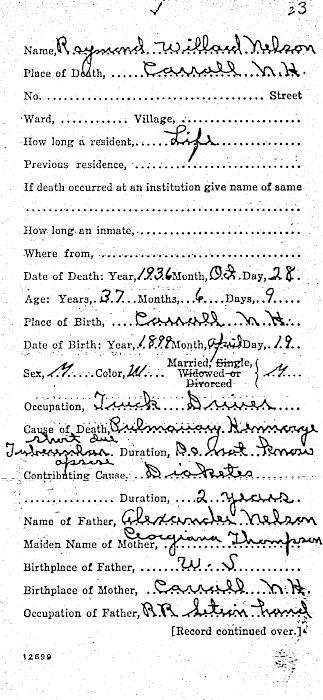 23
Name, Raymond Willard Nelson
Place of Death, Carroll N.H.
No. Street
Ward, Village,
How long a resident, Life
Previous residence,
If death occurred at an institution give name of same
How long an inmate,
Where from,
Date of Death: Year, 1936 Month, Oct Day, 28
Age: Years, 37 Months, 6 Days, 9
Place of Birth, Carroll N.H.
Date of Birth: Year, 1899 Month, April Day, 19
Sex, M Color, W Married, Single, Widowed or Divorced M
Occupation, Truck Driver
Cause of Death, Pulmonary Hemorage
due
Duration, Do not know
Contributing Cause, Diabetes
Duration, 2 years
Name of Father, Alexander Nelson
Maiden Name of Mother, Georgiana Thompson
Birthplace of Father, W. S
Birthplace of Mother, Carroll N.H.
Occupation of Father, RR hand
[Record continued over.]
12699